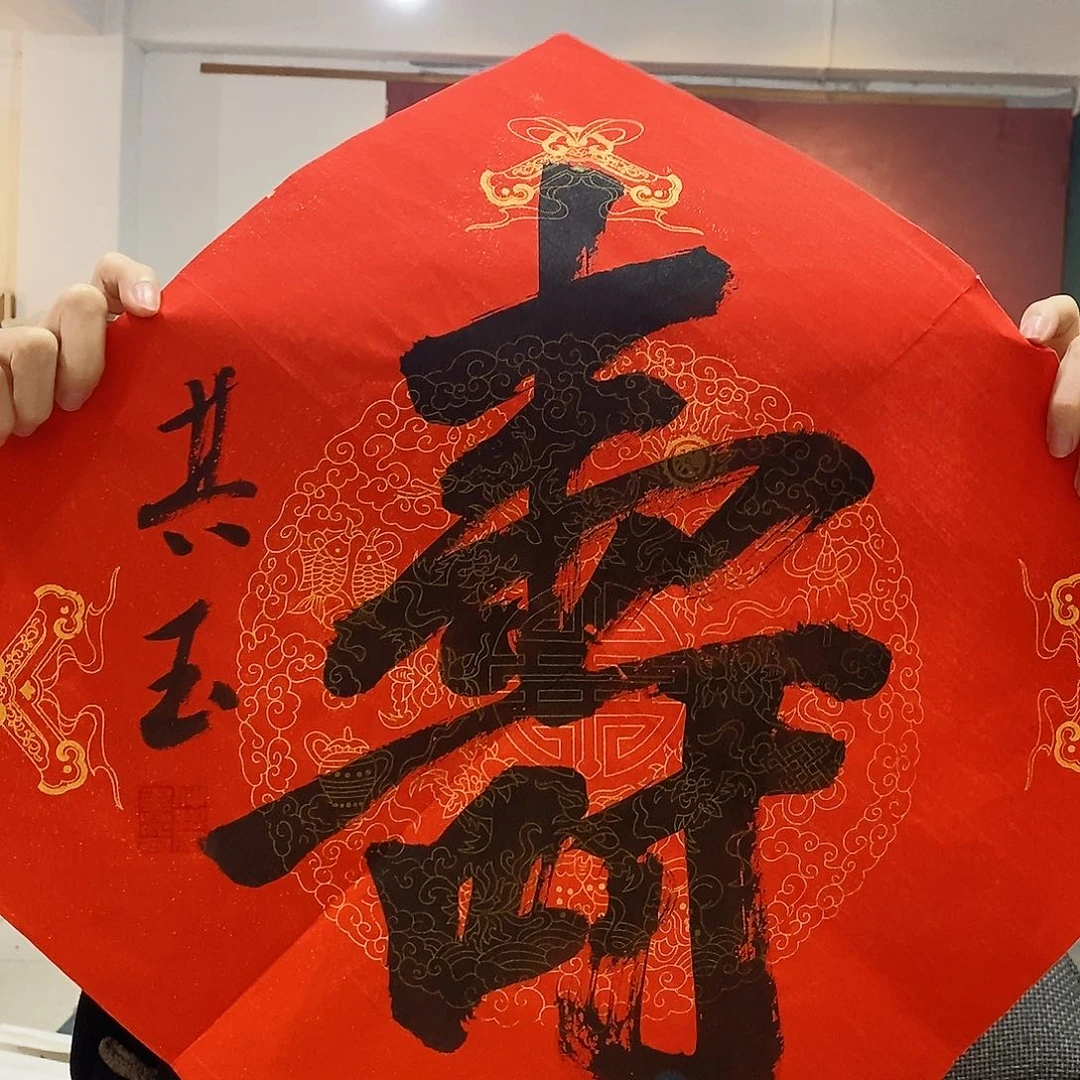 壽
其玉